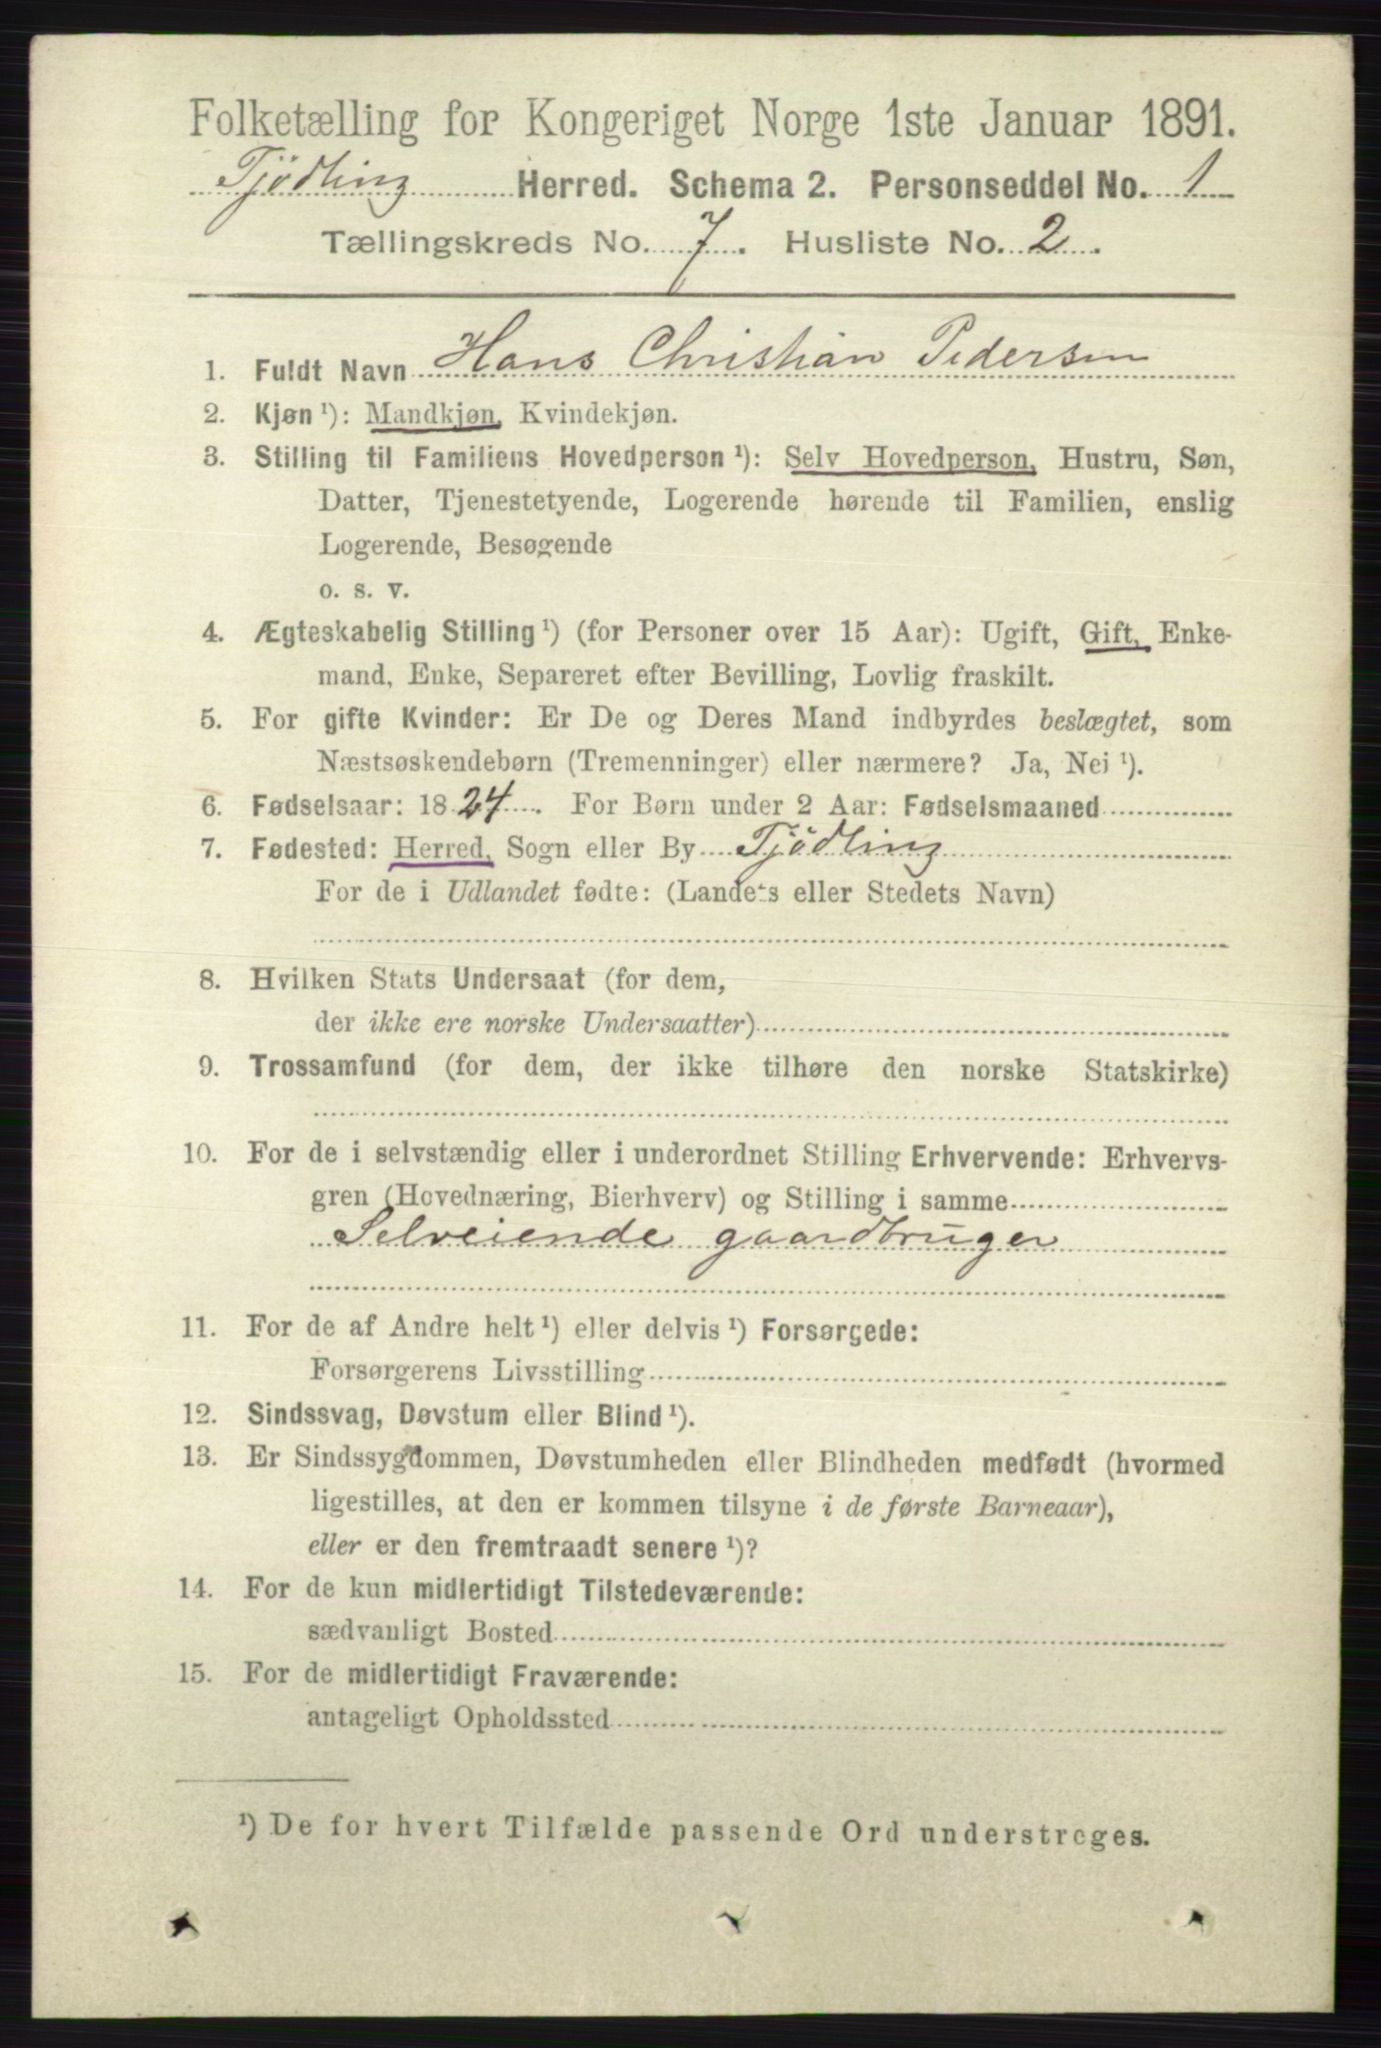 Folketælling for Kongeriget Norge 1ste Januar 1891.
Tjödling Herred. Schema 2. Personseddel No. 1
Tællingskreds No. 7. Husliste No. 2.
1. Fuldt Navn Hans Christian Pedersen
2. Kjøn ¹): Mandkjøn, Kvindekjøn.
3. Stilling til Familiens Hovedperson ¹): Selv Hovedperson, Hustru, Søn,
Datter, Tjenestetyende, Logerende hørende til Familien, enslig
Logerende, Besøgende
o. s. v.
4. Ægteskabelig Stilling ¹) (for Personer over 15 Aar): Ugift, Gift, Enke-
mand, Enke, Separeret efter Bevilling, Lovlig fraskilt.
5. For gifte Kvinder: Er De og Deres Mand indbyrdes beslægtet, som
Næstsøskendebørn (Tremenninger) eller nærmere? Ja, Nei ¹).
6. Fødselsaar: 1824. For Børn under 2 Aar: Fødselsmaaned
7. Fødested: Herred, Sogn eller By Tjödling
For de i Udlandet fødte: (Landets eller Stedets Navn)
8. Hvilken Stats Undersaat (for dem,
der ikke ere norske Undersaatter)
9. Trossamfund (for dem, der ikke tilhøre den norske Statskirke)
10. For de i selvstændig eller i underordnet Stilling Erhvervende: Erhvervs-
gren (Hovednæring, Bierhverv) og Stilling i samme
Selveiende gaardbruger
11. For de af Andre helt ¹) eller delvis ¹) Forsørgede:
Forsørgerens Livsstilling
12. Sindssvag, Døvstum eller Blind ¹).
13. Er Sindssygdommen, Døvstumheden eller Blindheden medfødt (hvormed
ligestilles, at den er kommen tilsyne i de første Barneaar),
eller er den fremtraadt senere ¹)?
14. For de kun midlertidigt Tilstedeværende:
sædvanligt Bosted
15. For de midlertidigt Fraværende:
antageligt Opholdssted
¹) De for hvert Tilfælde passende Ord understreges.